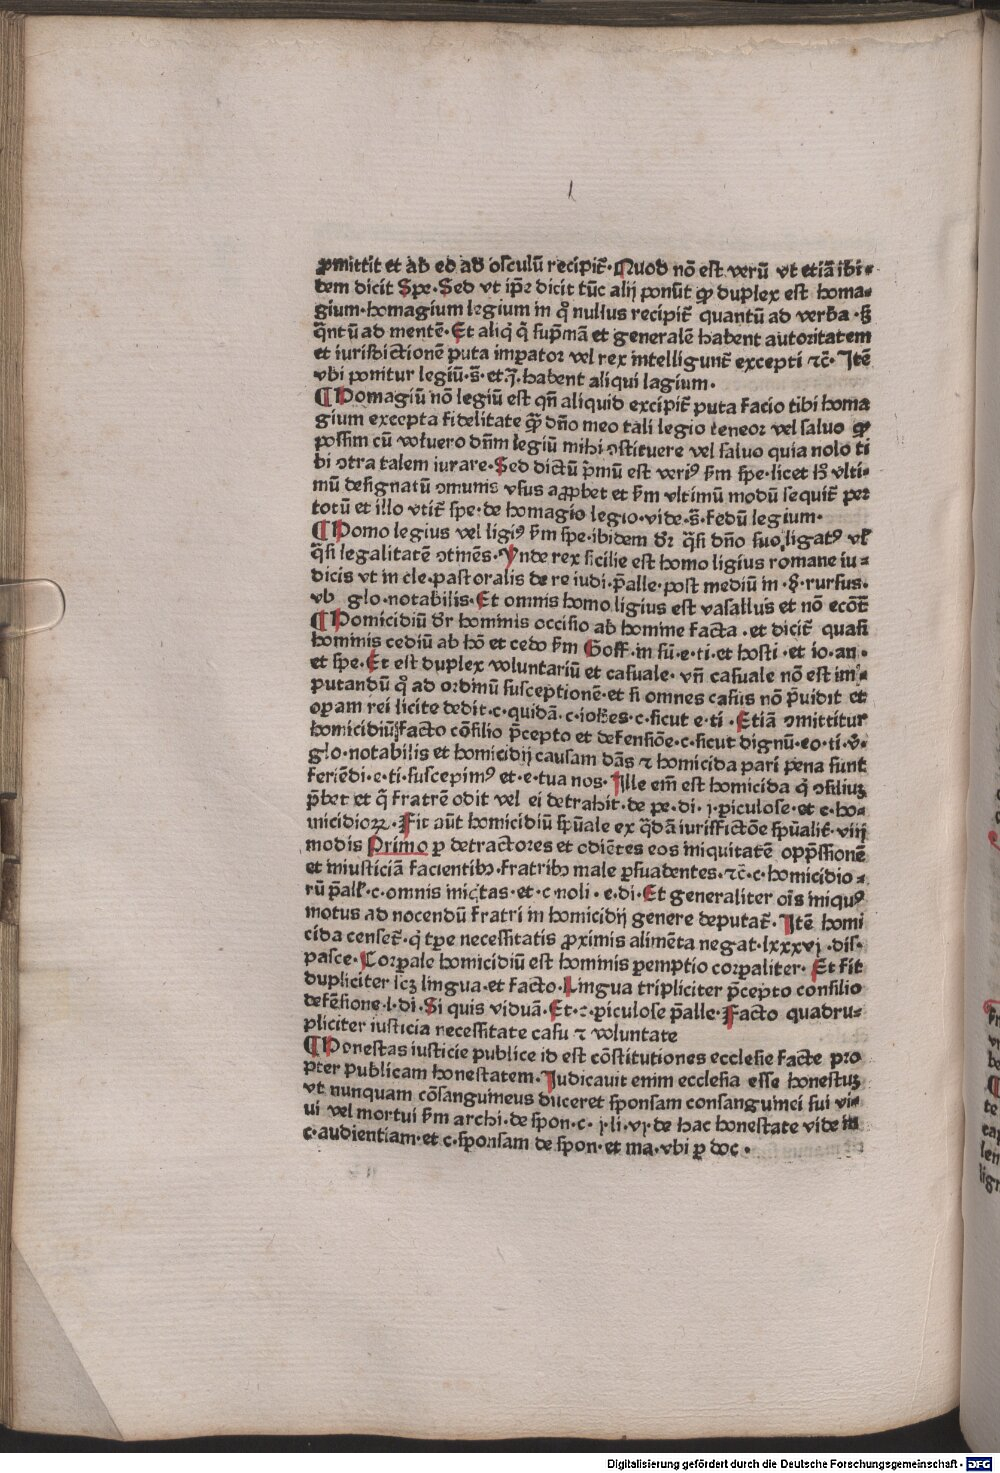 ꝓmittit et ab eo ad osculū recipit᷑. Quod nō est verū vt etiā ibi⸗
dem dicit Spe. Sed vt ip̄e dicit tūc alij ponūt ꝙ duplex est homa⸗
gium. homagium legium in q̊ nullus recipit᷑ quantū ad verba. sꝫ
q̄ntū ad mentē. Et aliq̇ q̇ sup̄mā et generalē habent autoritatem
et iurisdictionē puta imꝑator vel rex intelligunt᷑ excepti ⁊c̄. Itē
vbi ponitur legiū. s̄. et.j̄. habent aliqui lagium.
¶ Homagiū nō legiū est qn̄ aliquid excipit᷑ puta facio tibi homa
gium excepta fidelitate quā dn̄o meo tali legio teneor vel saluo ꝙ
possim cū voluero dn̄m legiū mihi ꝯstituere vel saluo quia nolo ti
bi ꝯtra talem iurare. Sed dictū p̄mū est veriꝰ ẜm spe. licet hꝫ vlti⸗
mū designatū ꝯmunis vsus aꝓbet et ẜm vltimū modū sequit᷑ per
totū et illo vtit᷑ spe. de homagio legio. vide. s̄. fedū legium.
¶ Homo legius vel ligiꝰ ẜm spe. ibidem dr̄ q̄si dn̄o suo ligatꝰ vl̓
q̄si legalitatē ꝯtinēs. Vnde rex sicilie est homo ligius romane iu⸗
dicis vt in cle. pastoralis de re iudi. p̄alle. post mediū in .§. rursus.
vb glo. notabilis. Et omnis homo ligius est vasallus et nō ecōt̄
¶ Homicidiū dr̄ hominis occisio ab homine facta . et dicit᷑ quasi
hominis cediū ab hō et cedo ẜm Goff. in sū. e. ti. et hosti . et io. an.
et spe. Et est duplex voluntariū et casuale. vn̄ casuale nō est im⸗
putandū q̊ ad ordinū susceptionē. et si omnes casus nō p̄uidit et
oꝑam rei licite dedit. c. quidā. c. ioh̄es. c. sicut e. ti . Etiā ꝯmittitur
homicidiū facto cōsilio p̄cepto et defensiōe. c. sicut dignū. eo. ti. v̄.
glo. notabilis et homicidij causam dās ⁊ homicida pari pena sunt
feriēdi. e. ti. suscepimꝰ et. e. tua nos. Ille em̄ est homicida q̇ ꝯsiliuꝫ
p̄bet et q̇ fratrē odit vel ei detrahit. de pe. di. j. ꝑiculose. et c. ho⸗
micidioꝝ. Fit aūt homicidiū spūale ex q̄dā iurisfictōe spūalit᷑. viij
modis Primo ꝑ detractores et odiētes eos iniquitatē opp̄ssionē
et iniusticiā facientibꝫ. fratribꝫ male ꝑsuadentes. ⁊c̄. c. homicidio⸗
rū p̄all̓. c. omnis iniq̇tas. et. c. noli . e. di. Et generaliter oīs iniquꝰ
motus ad nocendū fratri in homicidij genere deputat᷑. Itē homi
cida censet᷑. q̇ tꝑe necessitatis ꝓximis alimēta negat. lxxxvj .dis.
pasce. Corꝑale homicidiū est hominis ꝑemptio corꝑaliter. Et fit
dupliciter scꝫ lingua. et facto. Lingua tripliciter p̄cepto consilio
defēsione. l. di. Si quis viduā. Et. c. ꝑiculose p̄alle. Facto quadru⸗
pliciter iusticia necessitate casu ⁊ voluntate
¶ Honestas iusticie publice id est cōstitutiones ecclesie facte pro
pter publicam honestatem. Iudicauit enim ecclesia esse honestuꝫ
vt nunquam cōsanguineus duceret sponsam consanguinei sui vi⸗
ui vel mortui ẜm archi. de spon. c. j. li. vj. de hac honestate vide in
c. audientiam. et c. sponsam de spon. et ma. vbi ꝑ doc.
Digitalisierung gefördert durch die Deutsche Forschungsgemeinschaft - DFG